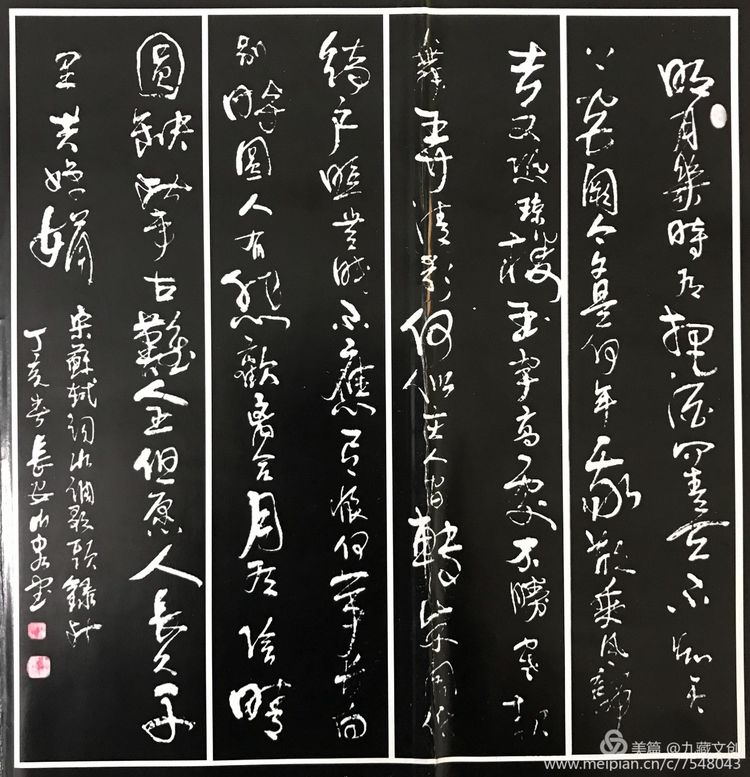 明月幾時有把酒問青天不知天
上宮闕今夕是何年我欲乘風歸
去又恐瓊樓玉宇高處不勝寒起
舞弄清影何似在人間轉朱閣低
綺戶照無眠不應有恨何事長向
別時圓人有悲歡離合月有陰晴
圓缺此事古難全但愿人長久千
里共嬋娟
宋蘇軾詞水調歌頭錄於
丁亥春長安
美篇 @九藏文创
www.meipian.cn/c/7548043